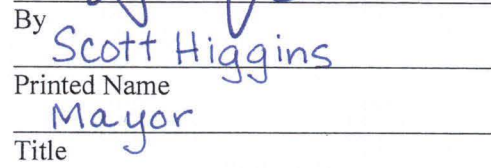 By
Scott Higgins
Printed Name
Mayor
Title